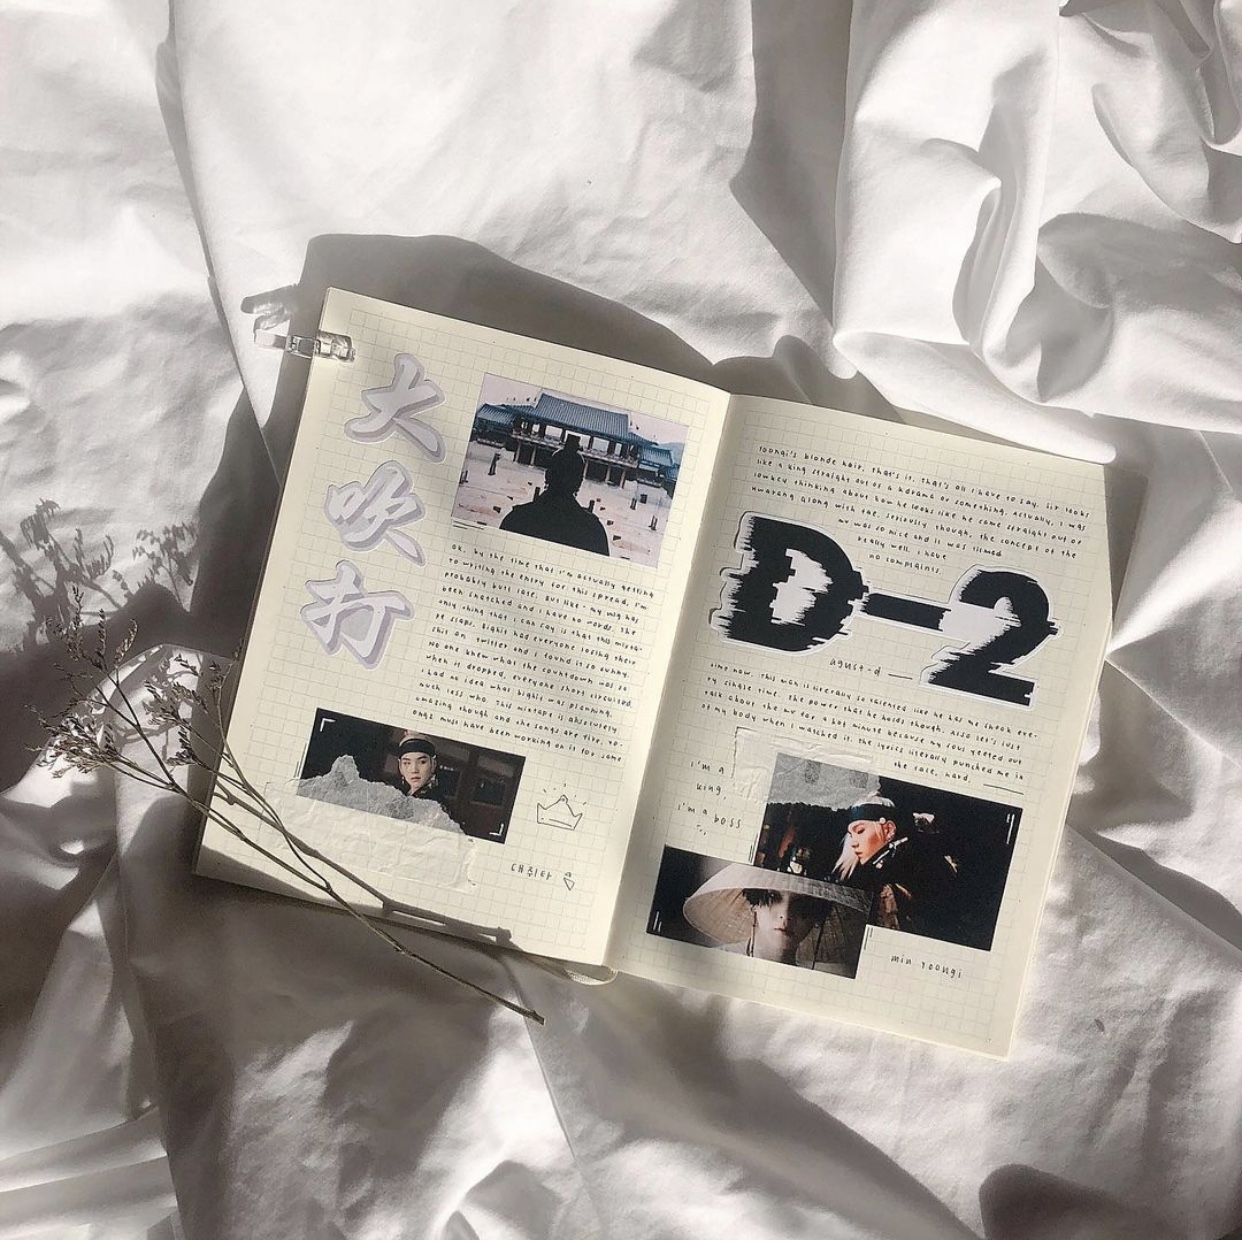 大
吹
打
ok, by the time that i'm actually getting
to writing the entry for this spread, i'm
probably but late. but like - my wig has
been snatched and i have no words. the
only thing that i can say is that this mixta-
pe slaps. bighit had everyone losing their
shit on twitter and i found it so funny.
no one knew what the countdown was so
when it dropped, everyone short circuited.
i had no idea what bighit was planning,
much less who. This mixtape is absolutely
amazing though and the songs are fire. yo-
ongi must have been working on it for some
대취타
yoongi's blonde hair. that's it. that's all i have to say. he looks
like a king straight out of a kdrama or something. actually, i was
lowkey thinking about how he looks like he came straight out of
hwarang along with the. seriously though, the concept of the
mv was so nice and it was filmed
really well. i have
no complaints.
D-2
agust-d
time now. This man is literally so talented like he has me shook eve-
ry single time. the power that he holds though. also let's just
talk about the mv for a hot minute because my soul yeeted out
of my body when i watched it. the lyrics literally punched me in
the face. hard.
i'm a
king,
i'm a boss
min yoongi